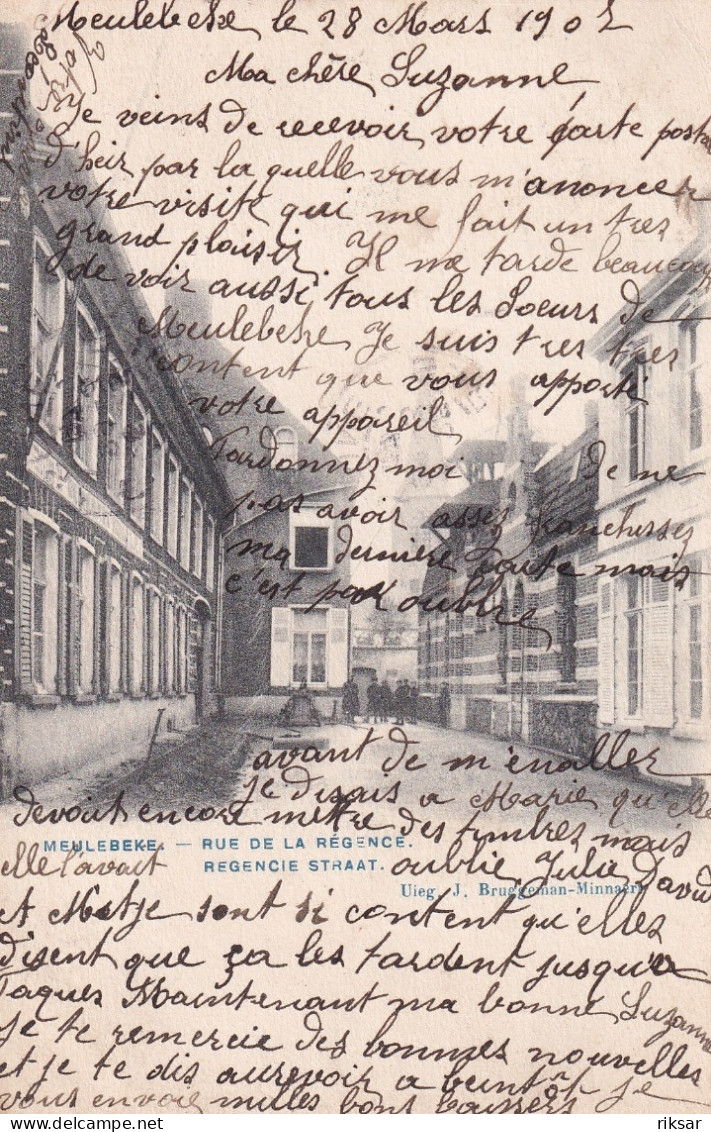 Meulebeke le 28 Mars 1902
Ma chère Suzanne
Je veins de recevoir votre carte postale
d'heir par la quelle vous m'anoncer
votre visite qui me fait un tres
grand plaisir. Il me tarde beaucoup
de voir aussi tous les Soeurs de
Meulebeke Je suis tres tres
content que vous apporte
votre appareil
Pardonnez moi de ne
pas avoir assez franchessez
ma derniere carte mais
c'est par oublie
avant de m'en aller
je disais a Marie qu'elle
devait encore mettre des timbres mais
MEULEBEKE. — RUE DE LA RÉGENCE.
elle l'avait oublie. Julie David
REGENCIE STRAAT.
Uieg. J. Bruggeman-Minnaert
et Metje sont si content qu'elles
disent que ça les tardent jusqu'a
Paques Maintenant ma bonne Suzanne
je te remercie des bonnes nouvelles
et je te dis aurevoir a beintôt je
vous envoie milles bons baissers
riksar